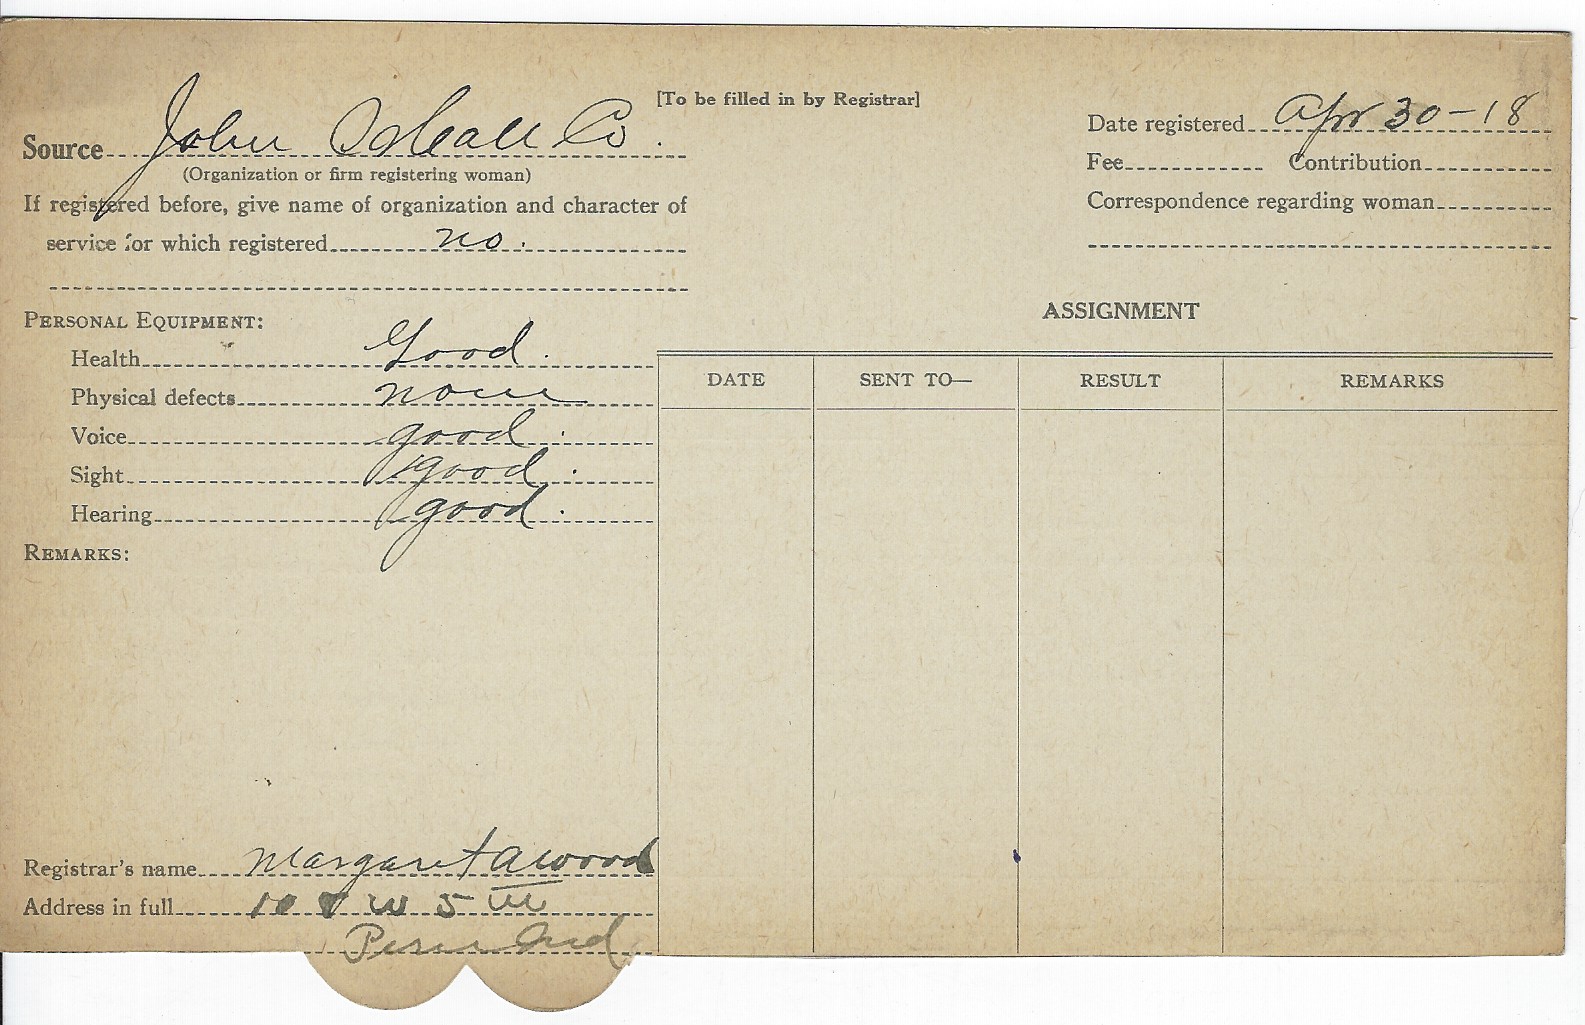 [To be filled in by Registrar]
Source John Co.
(Organization or firm registering woman)
If registered before, give name of organization and character of
service for which registered no.
Date registered Apr 30-18
Fee Contribution
Correspondence regarding woman
PERSONAL EQUIPMENT:
Health Good.
Physical defects none
Voice good.
Sight good.
Hearing good.
REMARKS:
ASSIGNMENT
DATE SENT TO— RESULT REMARKS
Registrar's name Margaret A Wood
Address in full W 5 th
Peru Ind